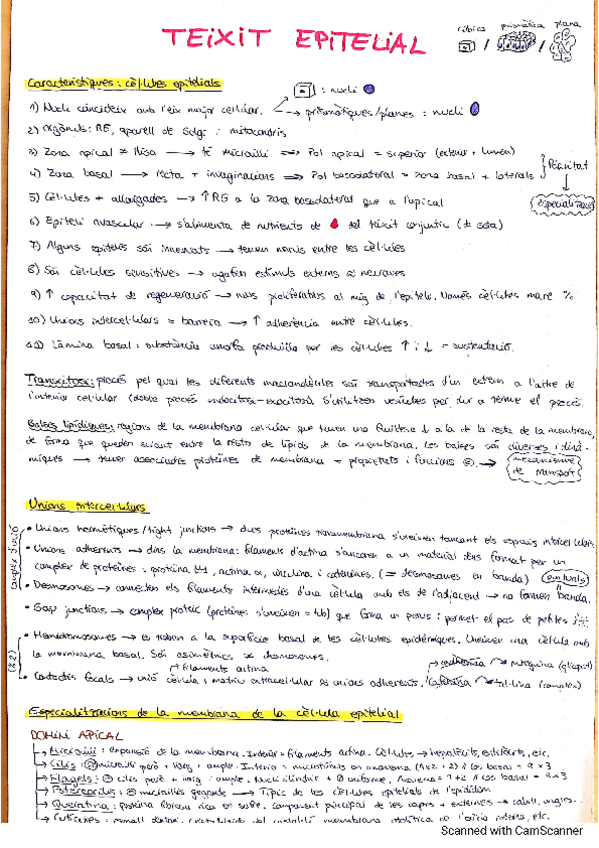 TEIXIT EPITELIAL
cúbica prismàtica plana
/ /
Característiques: cèl·lules epitelials
: nucli
1) Nucli coincideix amb l'eix major cel·lular. → prismàtiques/planes : nucli
2) Orgànuls: RE, aparell de Golgi i mitocondris
3) Zona apical ≠ llisa → té microvilli ⇒ Pol apical = superior (exterior + lumen)
4) Zona basal → recta + invaginacions ⇒ Pol basolateral = zona basal + laterals
Polaritat
especialització
5) Cèl·lules + allargades → ↑ RE a la zona basolateral que a l'apical
6) Epiteli avascular → s'alimenta de nutrients de del teixit conjuntiu (de sota)
7) Alguns epitelis són innervats → tenen nervis entre les cèl·lules
8) Són cèl·lules sensitives → agafen estímuls externs
9) ↑ capacitat de regeneració → proliferatius al mig de l'epiteli. Només cèl·lules mare
10) Unions intercel·lulars = barrera → ↑ adherència entre cèl·lules.
11) Làmina basal: substància amorfa produïda per les cèl·lules ↑ i ↓ = sustentació.
Transcitosi: procés pel qual les diferents macromolècules són transportades d'un extrem a l'altre de
l'interior cel·lular (doble procés endocitosi-exocitosi). S'utilitzen vesícules per dur a terme el procés.
Basses lipídiques: regions de la membrana cel·lular que tenen una fluïdesa ↓ a la de la resta de la membrana,
de forma que queden surant entre la resta de lípids de la membrana. Les basses són diverses i dinà-
miques → tenen associades proteïnes de membrana = propietats i funcions ≠. →
mecanisme
de transport
Unions intercel·lulars
complex d'unió
• Unions hermètiques/tight junctions → dues proteïnes transmembrana s'uneixen tancant els espais intercel·lulars.
• Unions adherents → dins la membrana: filaments d'actina s'ancoren a un material dens format per un
complex de proteïnes: proteïna actina α, vinculina i catenines. (= desmosomes en banda)
• Desmosomes → connecten els filaments intermedis d'una cèl·lula amb els de l'adjacent → no formen banda.
• Gap junctions → complex proteic (proteïnes s'uneixen = tub) que forma un porus: permet el pas de petites
• Hemidesmosomes → es troben a la superfície basal de les cèl·lules epidèrmiques. Uneixen una cèl·lula amb
la membrana basal. Són asimètrics, ≠ desmosomes.
filaments actina
• Contactes focals → unió cèl·lula i matriu extracel·lular
Especialitzacions de la membrana de la cèl·lula epitelial
DOMINI APICAL
→ Microvilli: expansió de la membrana. Interior = filaments actina. Cèl·lules → hepatòcits, etc.
→ Cilis: microvilli però + llarg i ample. Interior = microtúbuls en axonema (9x2 + 2) i cos basal = 9x3
→ Flagels: cilis però + llarg i ample. Nucli cilíndric + Axonema = 9+2 i cos basal = 9x3
→ Estereocilis: = microvillis gegants → Típic de les cèl·lules epitelials de l'epidídim
→ Queratina: proteïna fibrosa rica en sofre. Component principal de les capes + externes → cabell, ungles.
Scanned with CamScanner